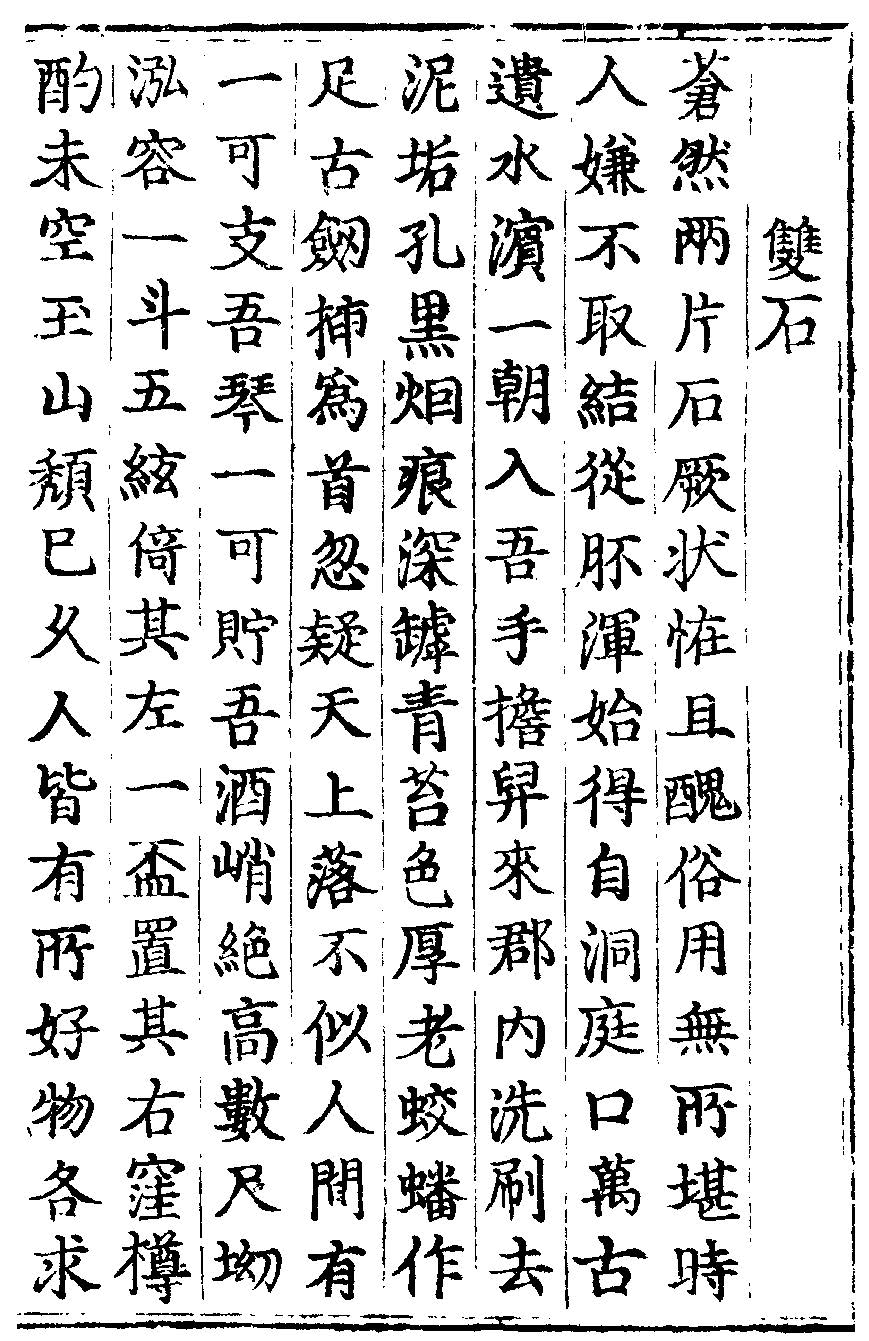 雙石
蒼然兩片石厥状恠且醜俗用無所堪時
人嫌不取結從胚渾始得自洞庭口萬古
遺水濱一朝入吾手擔舁來郡内洗刷去
泥垢孔黒烟痕深罅青苔色厚老蛟蟠作
足古劒揷爲首忽疑天上落不似人間有
一可支吾琴一可貯吾酒峭絶高數尺坳
泓容一斗五絃倚其左一盃置其右窪樽
酌未空玉山頽已久人皆有所好物各求